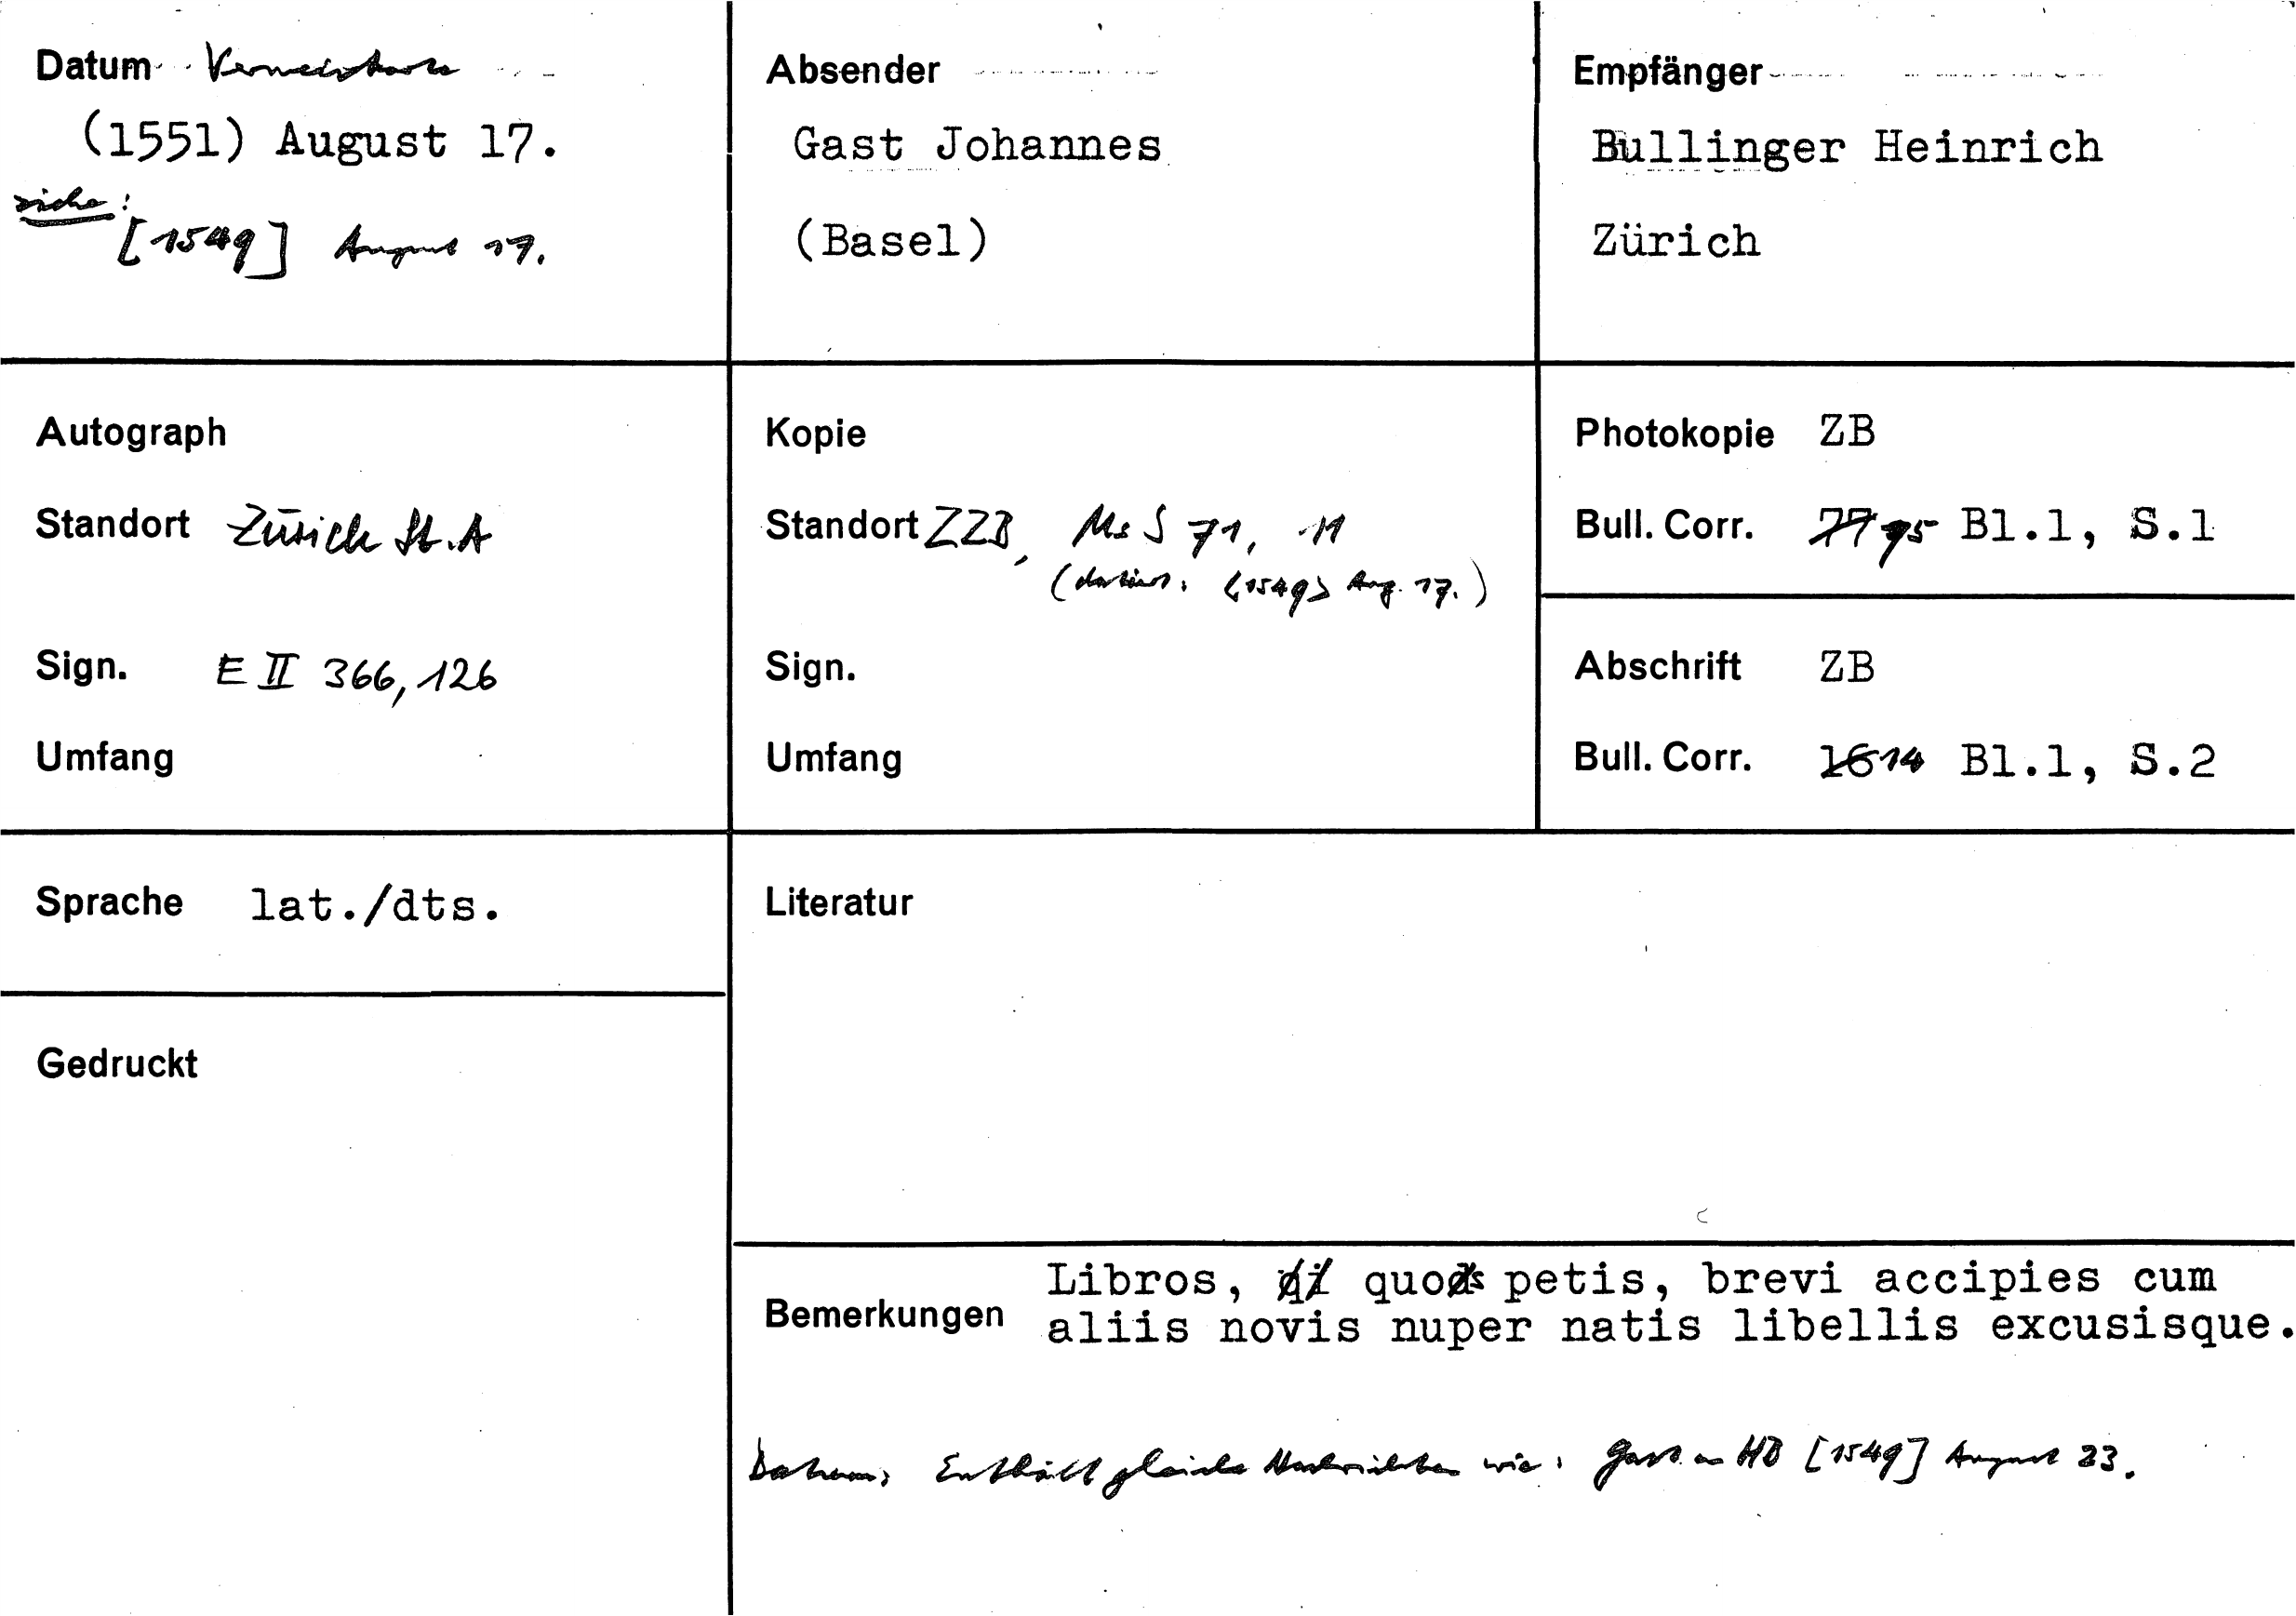 Datum Verweiskarte
(1551) August 17.
siehe:
[1549] August 17.
Absender
Gast Johannes
(Basel)
Empfänger
Bullinger Heinrich
Zürich
Autograph
Standort Zürich St.A
Sign. E II 366, 126
Umfang
Kopie
Standort ZZB, Ms S 71, 11
(datiert: <1549> Aug. 17.)
Sign.
Umfang
Photokopie ZB
Bull. Corr. 77 95 Bl.1, S.1
Abschrift ZB
Bull. Corr. 16 14 Bl.1, S.2
Sprache lat./dts.
Gedruckt
Literatur
Bemerkungen
Libros, quos petis, brevi accipies cum
aliis novis nuper natis libellis excusisque.
Datum: Enthält gleiche Nachrichten wie: Gast an HB [1549] August 23.